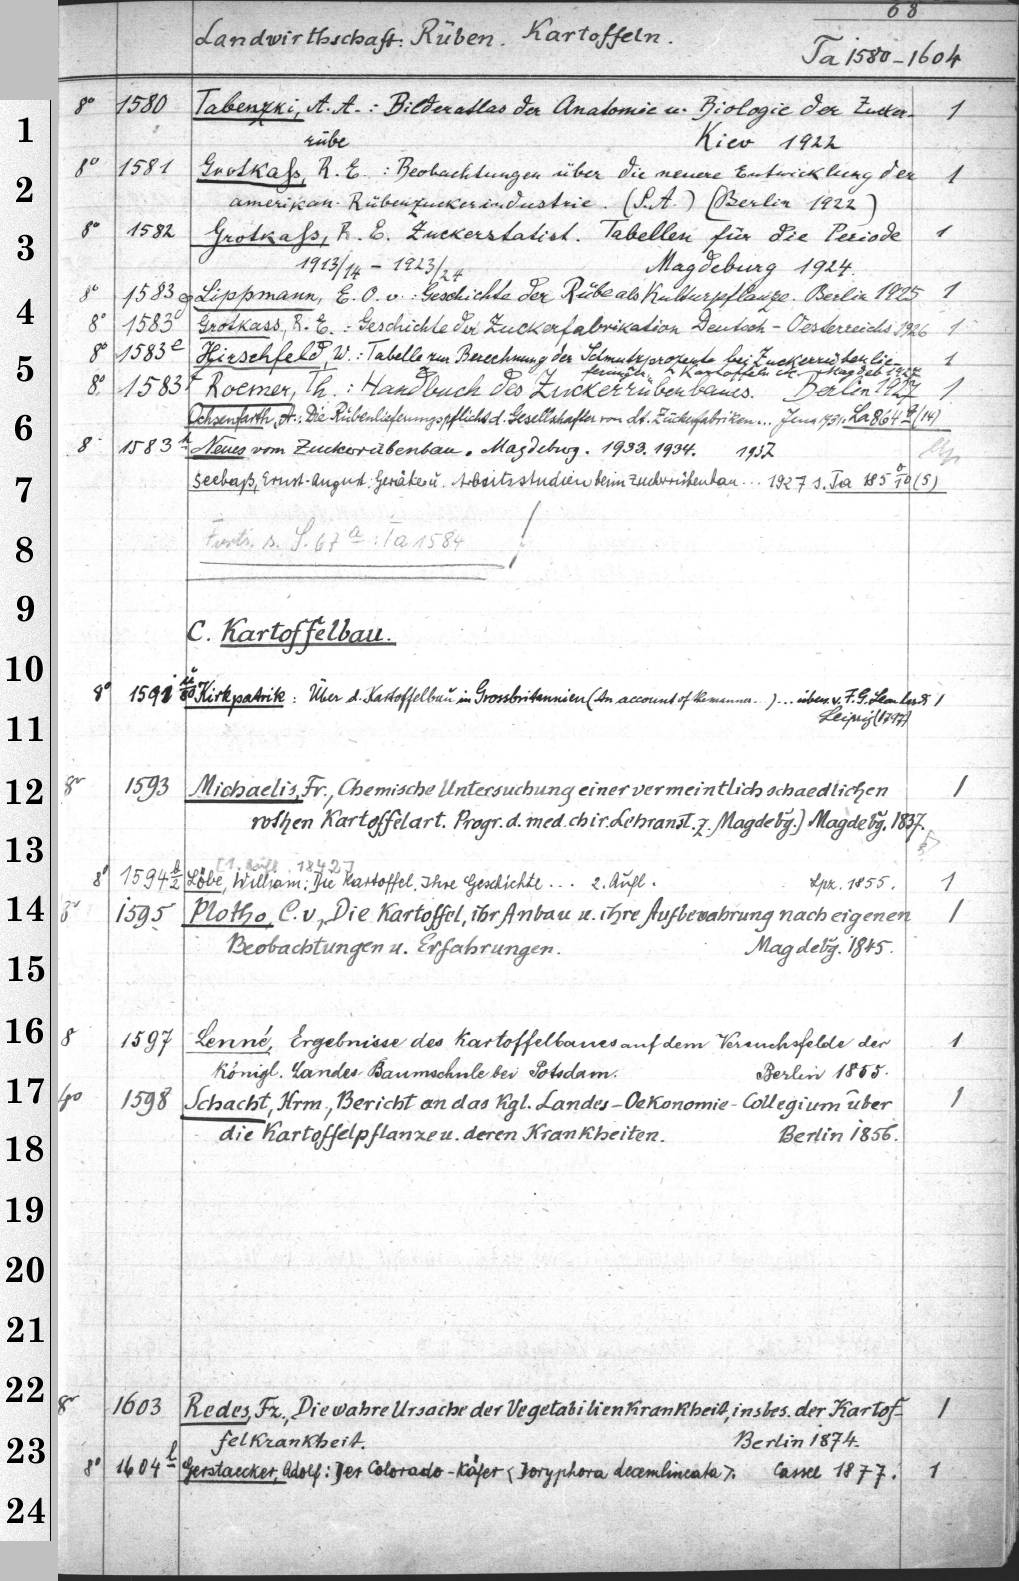 68
Landwirthschaft: Rüben. Kartoffeln.
Ta 1580-1604
1
2
3
4
5
6
7
8
9
10
11
12
13
14
15
16
17
18
19
20
21
22
23
24
8° 1580 Tabenzki, A. A. : Bilderatlas der Anatomie u. Biologie der Zucker- 1
rübe Kiev 1922
8° 1581 Grotkass, R. E. : Beobachtungen über die neuere Entwicklung der 1
amerikan. Rübenzuckerindustrie. (S.A.) (Berlin 1922)
8° 1582 Grotkass, R. E. Zuckerstatist. Tabellen für die Periode 1
1913/14 - 1923/24 Magdeburg 1924.
8° 1583 a Lippmann, E. O. v. : Geschichte der Rübe als Kulturpflanze. Berlin 1925 1
8° 1583 Grotkass, R. E. : Geschichte der Zuckerfabrikation Deutsch-Oesterreichs 1926 1
8° 1583 e Hirschfeld, W. : Tabelle zur Berechnung der Schmutzprozente bei Zuckerrüben lie- 1
Kartoffeln Magdeb 1927
8° 1583 f Roemer, Th. : Handbuch des Zuckerrübenbaues. Berlin 1927 1
Ochsenfarth, A.: Die Rübenlieferungspflicht d. Gesellschafter von dt. Zuckerfabriken... Jena 1931. La 864 q (14)
8° 1583 h Neues vom Zuckerrübenbau. Magdeburg. 1933. 1934. 1952
Seebass, Ernst-August: Geräte u. Arbeitsstudien beim Zuckerrübenbau ... 1927 s. Ta 185 o/10 (5)
Forts. s. S. 67 a : Ta 1584
C. Kartoffelbau.
8° 1591 Kirkpatrik : Über d. Kartoffelbau in Grossbritannien (An account of the manner...) ... übers. v. F. G. Leonhardi 1
Leipzig (1797)
8° 1593 Michaelis, Fr., Chemische Untersuchung einer vermeintlich schaedlichen 1
rothen Kartoffelart. Progr. d. med. chir. Lehranst. z. Magdebg.) Magdebg. 1837.
[1. Aufl. 1842]
8° 1594 Löbe, William: Die Kartoffel. Ihre Geschichte ... 2. Aufl. Lpz. 1855. 1
8° 1595 Plotho, C. v., Die Kartoffel, ihr Anbau u. ihre Aufbewahrung nach eigenen 1
Beobachtungen u. Erfahrungen. Magdebg. 1845.
8 1597 Lenné, Ergebnisse des Kartoffelbaues auf dem Versuchsfelde der 1
Königl. Landes Baumschule bei Potsdam. Berlin 1855.
4° 1598 Schacht, Hrm., Bericht an das Kgl. Landes-Oekonomie-Collegium über 1
die Kartoffelpflanze u. deren Krankheiten. Berlin 1856.
8° 1603 Redes, Fz., Die wahre Ursache der Vegetabilienkrankheit, insbes. der Kartof- 1
felkrankheit. Berlin 1874.
8° 1604 b Gerstaecker, Adolf: Der Colorado-Käfer <Doryphora decemlineata>. Cassel 1877. 1